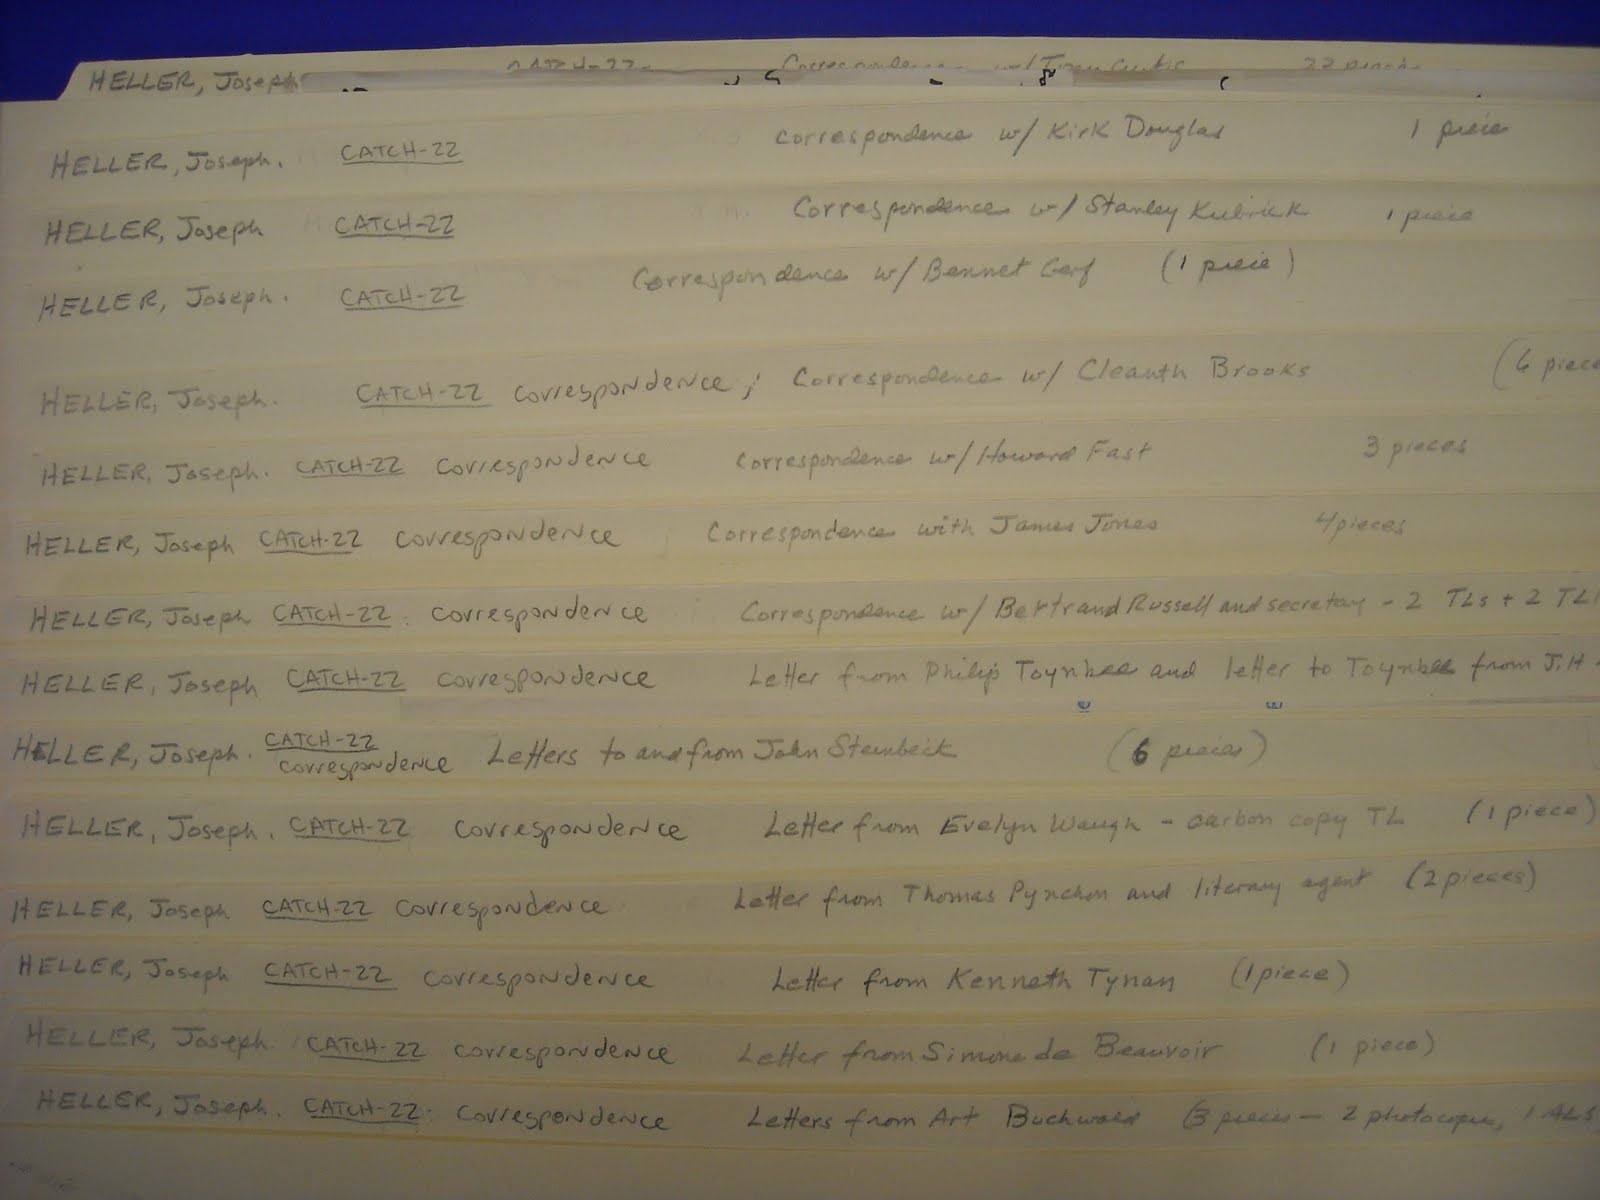 HELLER, Joseph CATCH-22 Correspondence w/ Tony Curtis
HELLER, Joseph. CATCH-22 Correspondence w/ Kirk Douglas 1 piece
HELLER, Joseph CATCH-22 Correspondence w/ Stanley Kubrick 1 piece
HELLER, Joseph. CATCH-22 Correspondence w/ Bennet Cerf (1 piece)
HELLER, Joseph. CATCH-22 correspondence; Correspondence w/ Cleanth Brooks (6 piece
HELLER, Joseph. CATCH-22 correspondence Correspondence w/ Howard Fast 3 pieces
HELLER, Joseph CATCH-22 correspondence Correspondence with James Jones 4 pieces
HELLER, Joseph CATCH-22. correspondence Correspondence w/ Bertrand Russell and secretary - 2 TLs + 2 TL
HELLER, Joseph CATCH-22 correspondence Letter from Philip Toynbee and letter to Toynbee from J.H.
HELLER, Joseph. CATCH-22 correspondence Letters to and from John Steinbeck (6 pieces)
HELLER, Joseph. CATCH-22 correspondence Letter from Evelyn Waugh - carbon copy TL (1 piece)
HELLER, Joseph CATCH-22 correspondence Letter from Thomas Pynchon and literary agent (2 pieces)
HELLER, Joseph CATCH-22 correspondence Letter from Kenneth Tynan (1 piece)
HELLER, Joseph. CATCH-22 correspondence Letter from Simone de Beauvoir (1 piece)
HELLER, Joseph. CATCH-22. correspondence Letters from Art Buchwald (3 pieces - 2 photocopies, 1 ALS